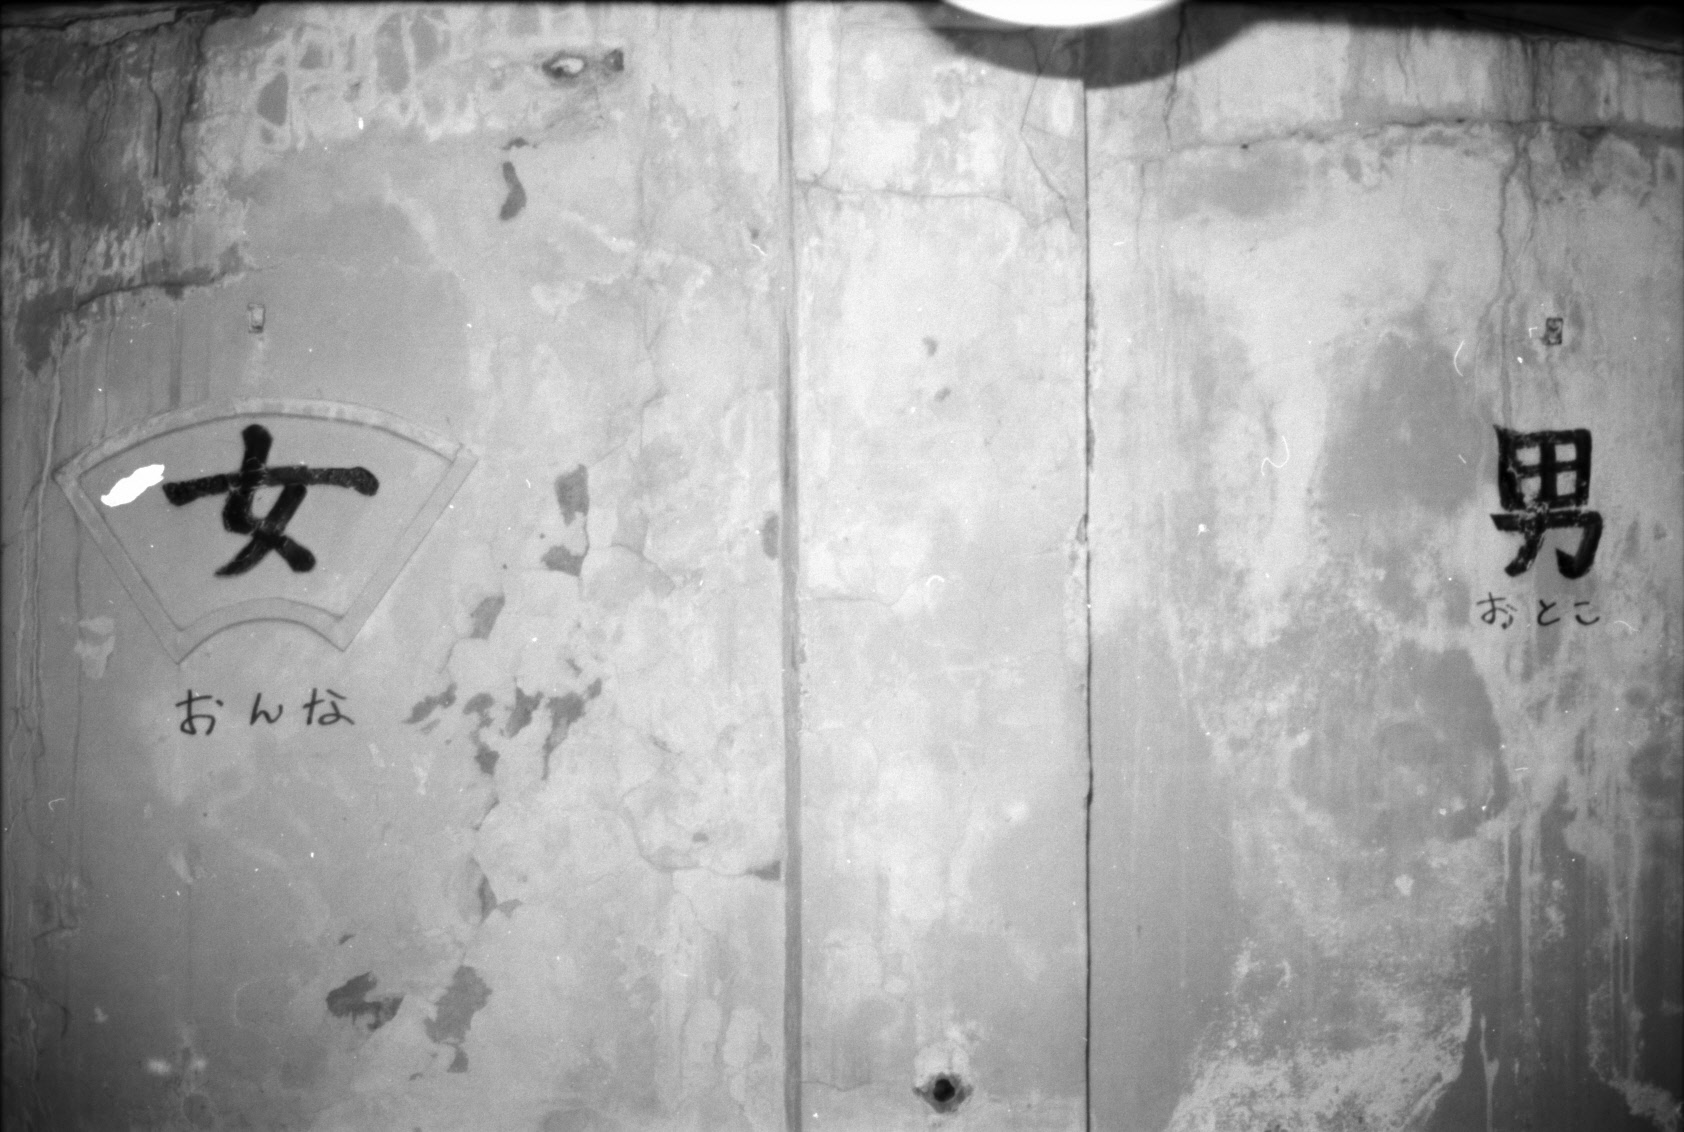 女
おんな
男
おとこ